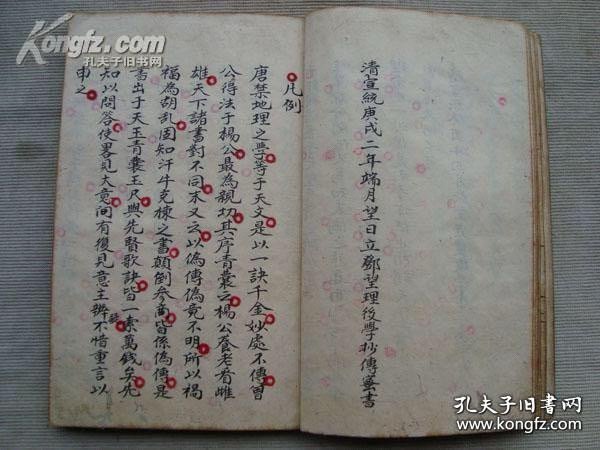 清宣統庚戌二年端月望日立鄧望理後學抄傳寔書
凡例
唐禁地理之學等于天文是以一訣千金妙處不傳曾
公得法于楊公最為親切其序青囊云楊公養老看雌
雄天下諸書對不同末又云以偽傳偽竟不明所以禍
福為胡乱固知汗牛充棟之書顛倒參商皆係偽傳是
書出于天玉青囊玉尺與先賢歌訣皆一索萬錢矣先
知以問答使畧見大意間有復見意主辨不惜重言以
申之
Kongfz.com
孔夫子旧书网
Kongfz.com
孔夫子旧书网